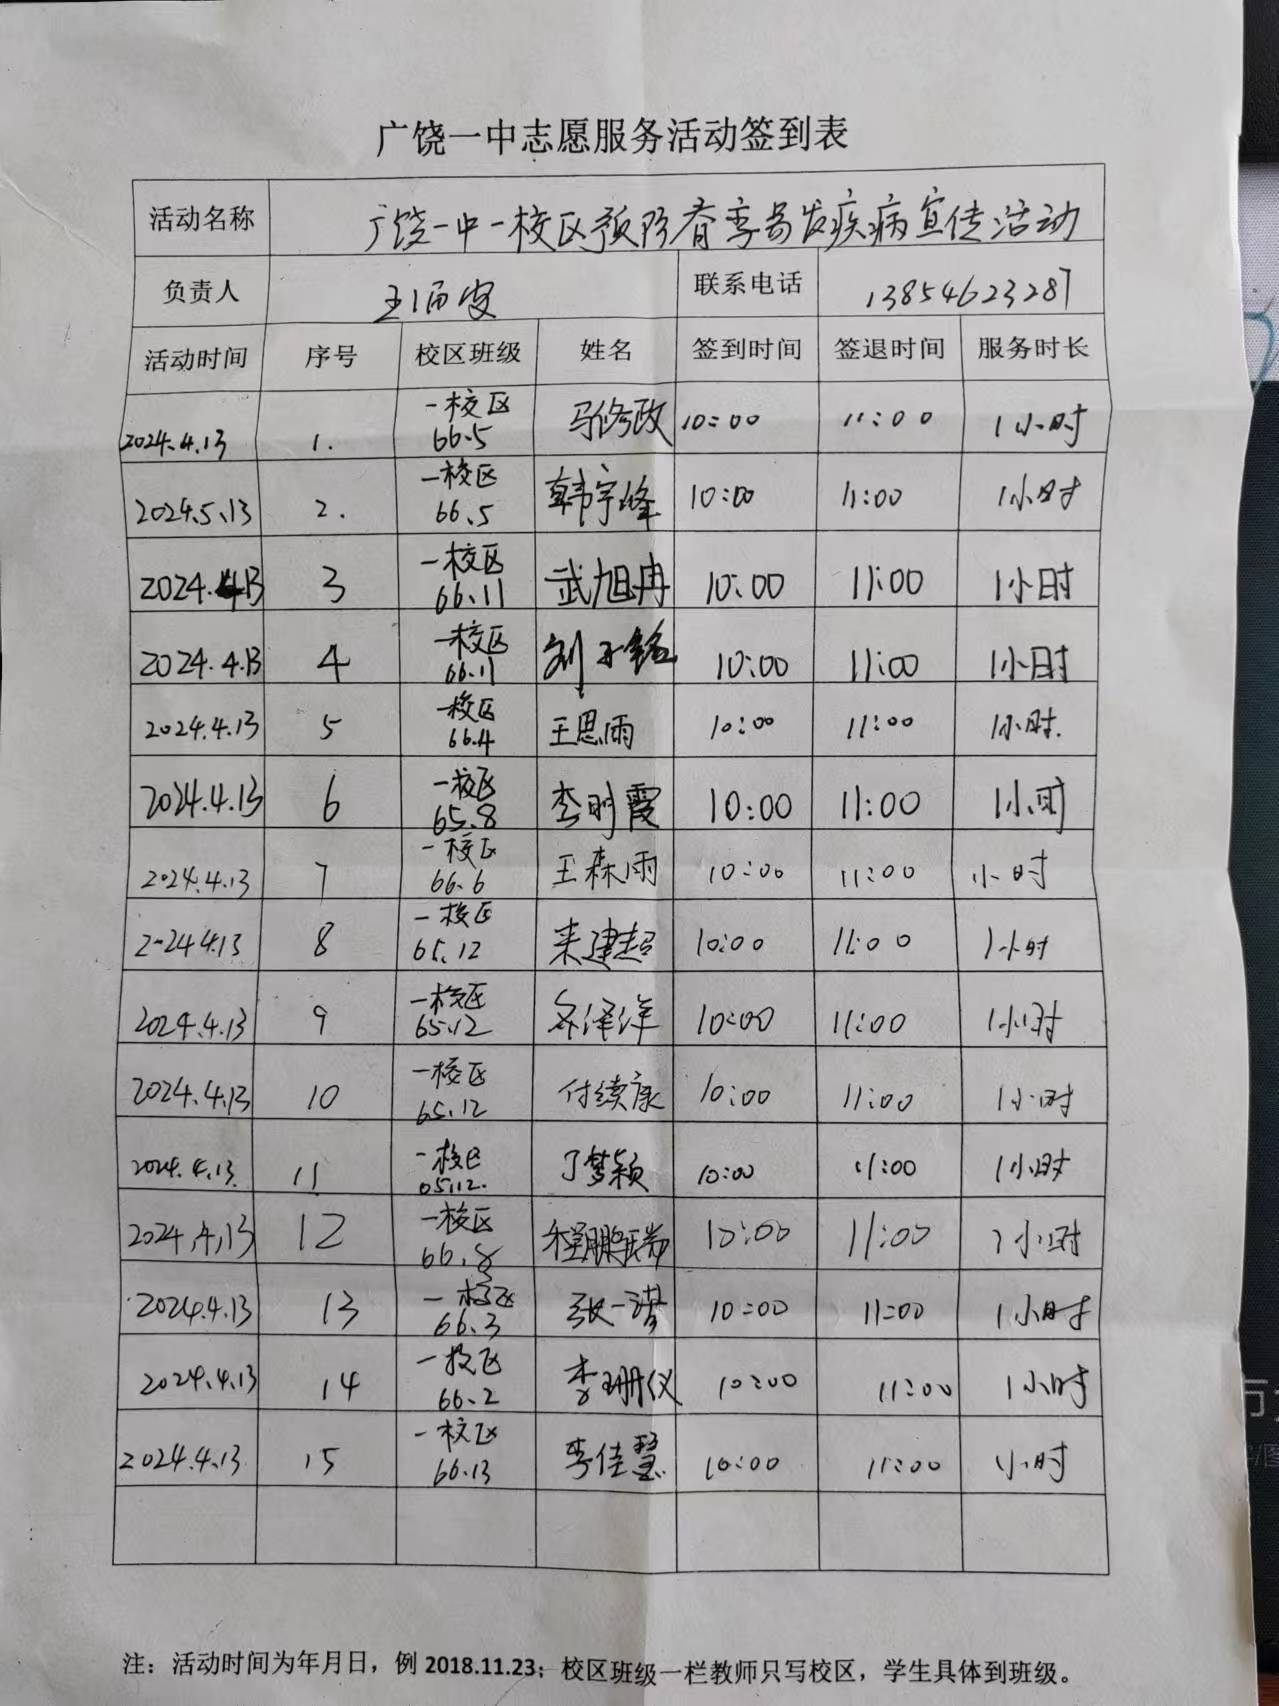 广饶一中志愿服务活动签到表
活动名称 广饶一中一校区预防春季易发疾病宣传活动
负责人 联系电话 13854623287
活动时间 序号 校区班级 姓名 签到时间 签退时间 服务时长
2024.4.13 1. 一校区 66.5 马修政 10:00 11:00 1小时
2024.5.13 2. 一校区 66.5 韩宇峰 10:00 11:00 1小时
2024.4.13 3 一校区 66.11 武旭冉 10:00 11:00 1小时
2024.4.13 4 一校区 66.11 刘子铭 10:00 11:00 1小时
2024.4.13 5 一校区 66.4 王思雨 10:00 11:00 1小时.
2024.4.13 6 一校区 65.8 李明霞 10:00 11:00 1小时
2024.4.13 7 一校区 66.6 王森雨 10:00 11:00 小时
2024.4.13 8 一校区 65.12 来建超 10:00 11:00 1小时
2024.4.13 9 一校区 65.12 齐泽洋 10:00 11:00 1小时
2024.4.13 10 一校区 65.12 付续康 10:00 11:00 1小时
2024.4.13. 11 一校区 65.12. 丁梦颖 10:00 11:00 1小时
2024.4.13 12 一校区 66.8 程鹏瑞 10:00 11:00 1小时
2024.4.13 13 一校区 66.3 张一诺 10:00 11:00 1小时
2024.4.13 14 一校区 66.2 李珊仪 10:00 11:00 1小时
2024.4.13 15 一校区 66.13 李佳慧 10:00 11:00 小时
注：活动时间为年月日，例 2018.11.23；校区班级一栏教师只写校区，学生具体到班级。